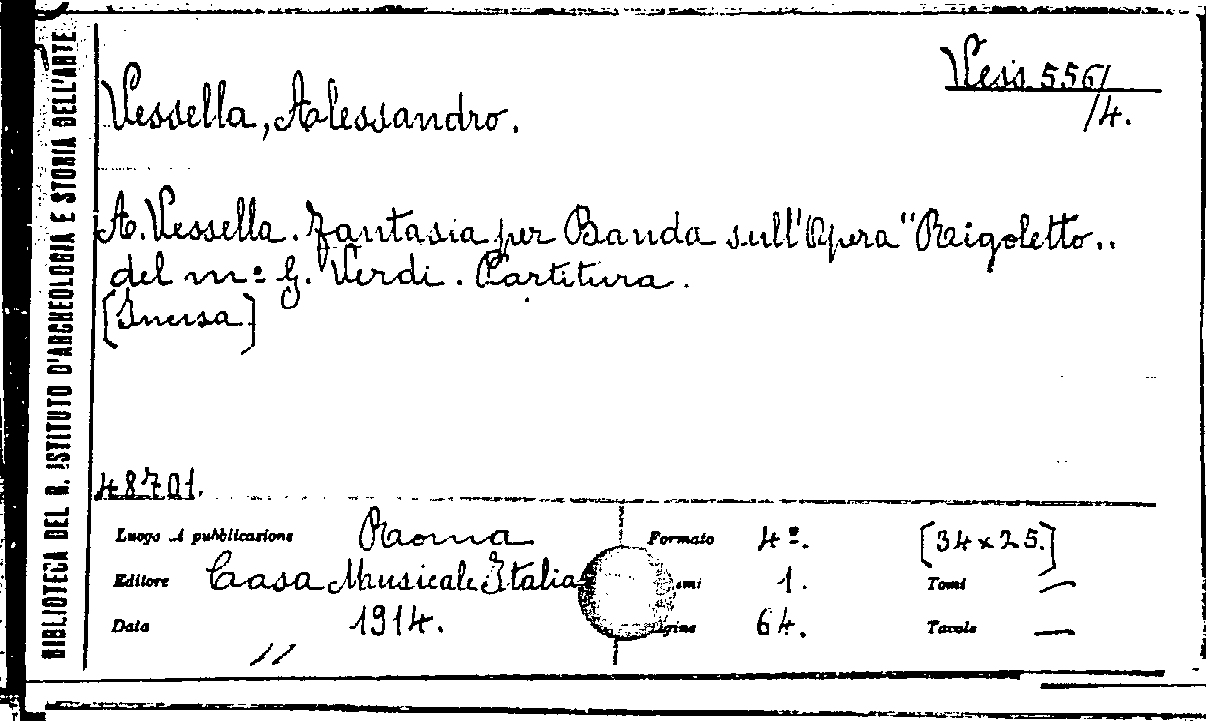 BIBLIOTECA DEL R. ISTITUTO D'ARCHEOLOGIA E STORIA DELL'ARTE
Vess. 556/
/4.
Vessella, Alessandro.
A. Vessella. Fantasia per Banda sull'Opera "Rigoletto"
del mº G. Verdi. Partitura.
[Inersa]
48701.
Luogo di pubblicazione Roma Formato 4º. [34 x 25.]
Editore Casa Musicale Italia 1. Tomi —
Data 1914. 64. Tavole —